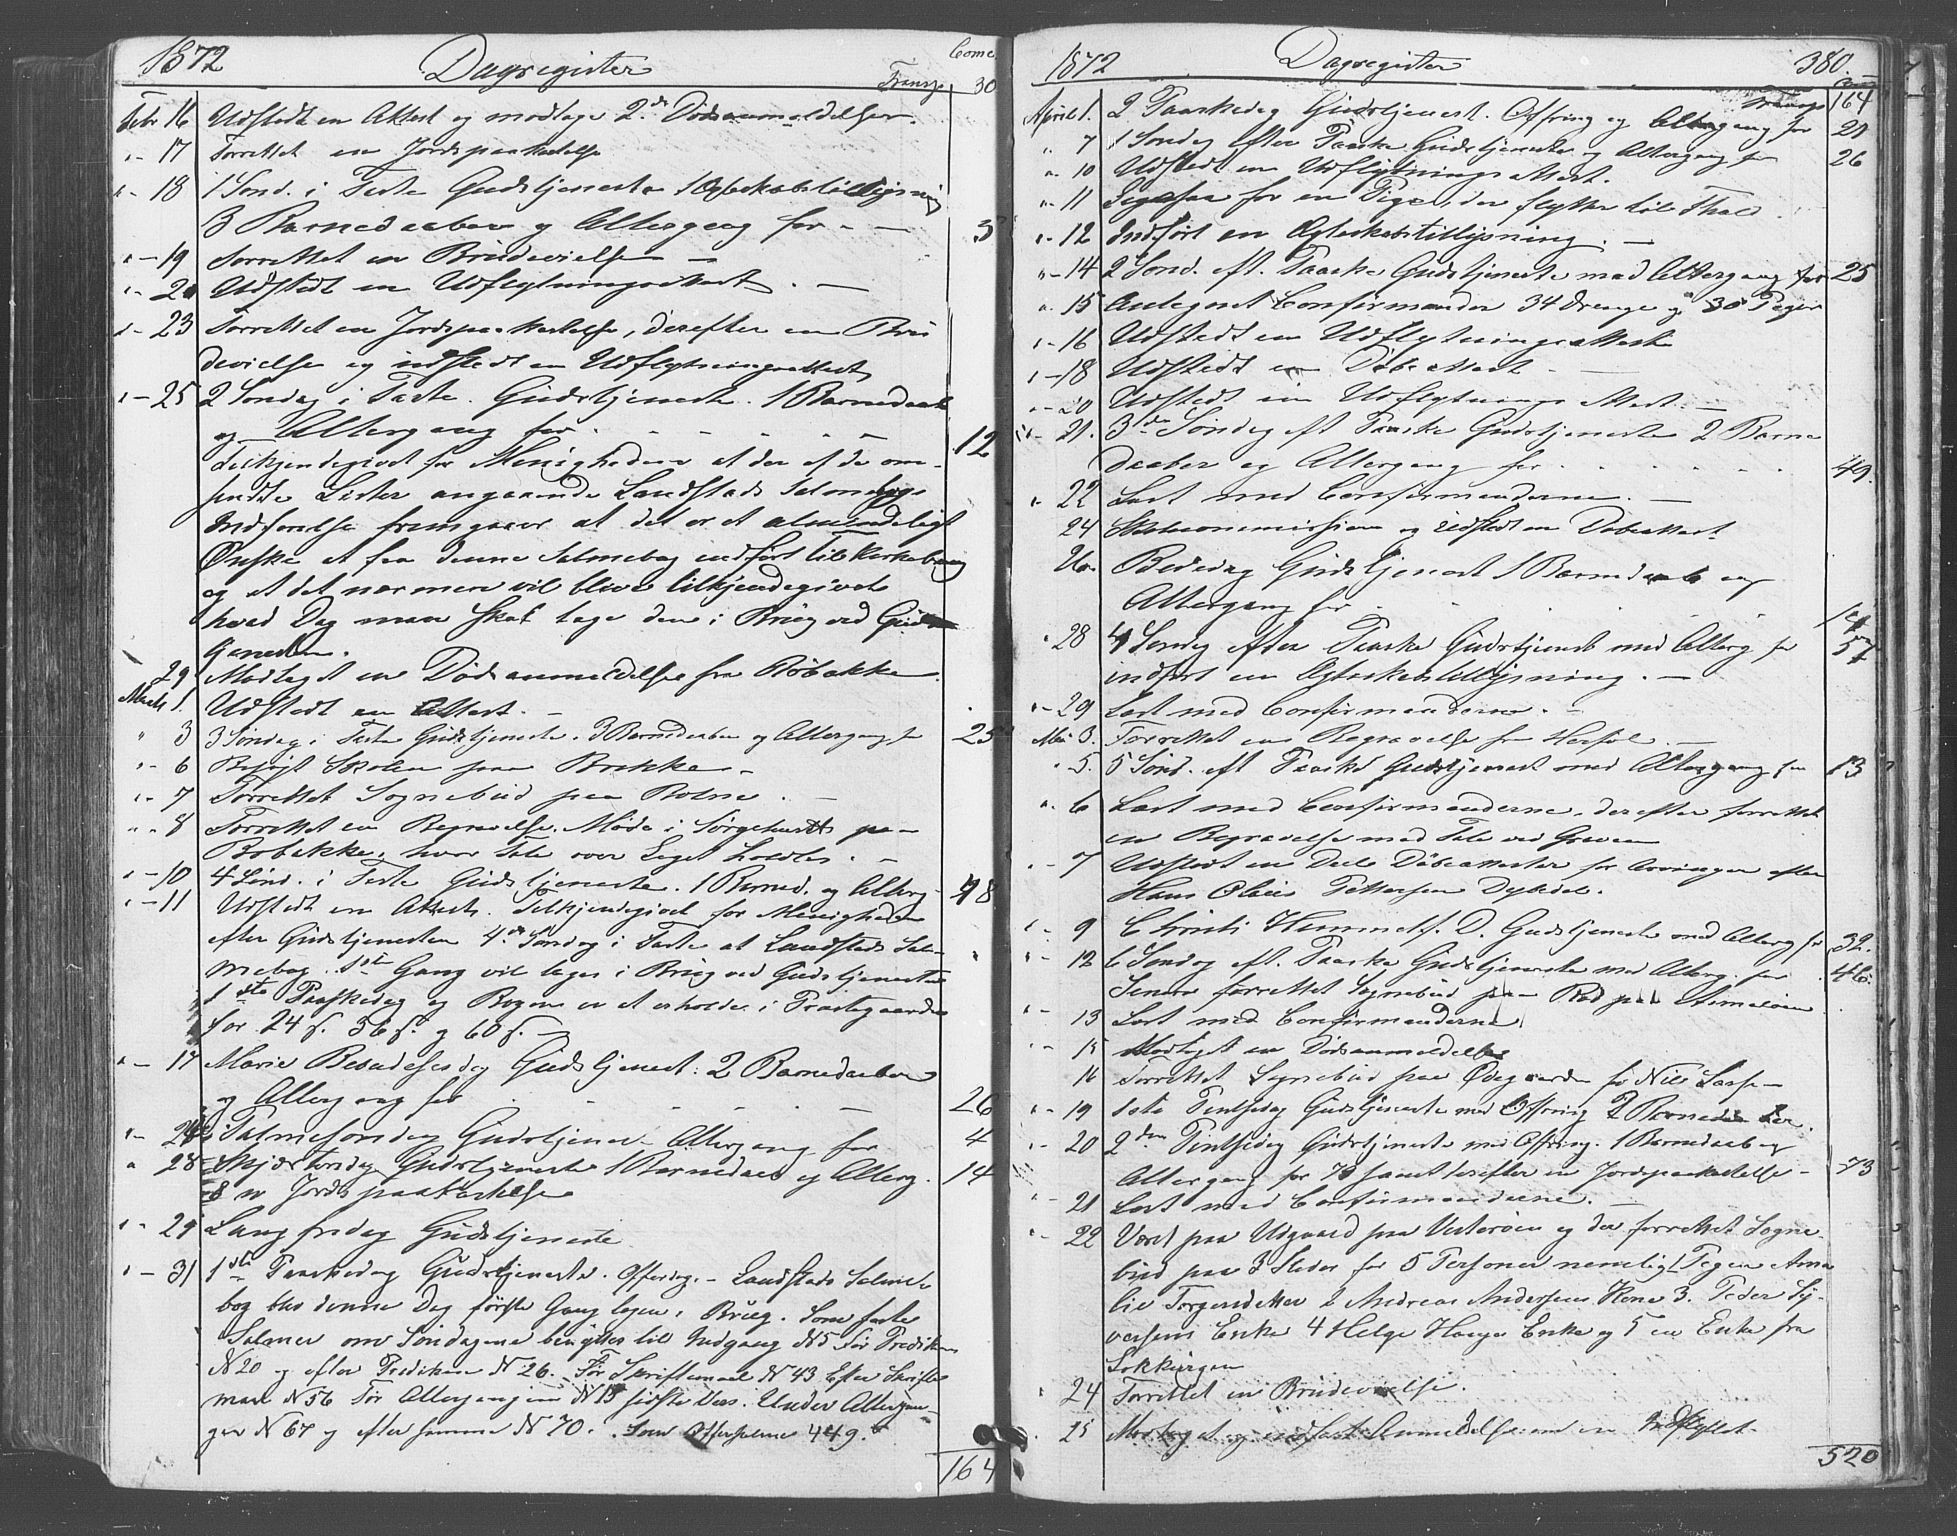 1872 Dagregister Comm.
Transp. 30
Febr 16 Udstedt en Attest og modtage 2de Dødsanmeldelser.
" - 17 Forrettet en Jordpaakastelse
" - 18 1 Sønd. i Faste Gudstjeneste 1 Ægteskabstillysning
3 Barnedaaber og Altergang for - - 3
" - 19 forrettet en Brudevielse -
" - 20 Udstedt en Udflytningsattest . -
" - 23 Forrettet en Jordpaakastelse, derefter en Bru
devielse og udstedt en Udflytningsattest
" - 25 2 Søndag i Faste. Gudstjeneste. 1 Barnedaab
og Altergang for . - . - . - 12
Tilkjendegivet for Menigheden at der af de om-
sendte Lister angaaende Landstads Salmebogs
Indførelse fremgaaer at det er et almindeligt
Ønske at faa denne Salmebog indført til Kirkebrug
og at det nærmere vil blive tilkjendegivet
hvad Dag man skal tage den i Brug ved Guds
tjenesten.
29 Modtaget en Dødsanmeldelse fra Robakke
Marts 1. Udstedt en Attest. -
" 3 3 Søndag i Faste Gudstjeneste. 3 Barnedaaber og Altergang for 25
" - 6 Besøgt Skolen paa Brekke -
" - 7 Forrettet Sognebud paa Rolne . -
" - 8 Forrettet en Begravelse. Møde i Sørgehuset paa
Robakke, hvor Tale over Liget holdtes . -
" - 10 4 Sønd. i Faste Gudstjeneste. 1 Barned. og Alterg. 48
" - 11 Udstedt en Attest. Tilkjendegivet for Menigheden
efter Gudstjenesten 4de Søndag i Faste at Landstads Sal-
mebog 1ste Gang vil tages i Brug ved Gudstjenesten
1ste Paaskedag og Bogen er at erholde i Præstegaarden
for 24 s. 36 s. og 60 s. -
" - 17 Marie Bebudelsesdag Gudstjenest: 2 Barnedaaber
og Altergang for . - . - 26
" - 24 Palmesøndag Gudstjenest - Altergang for 4
" 28 Skjærtorsdag Gudstjeneste 1 Barnedaab og Alterg. 14
& en Jordpaakastelse
" - 29 Langfredag Gudstjeneste
" - 31 1ste Paaskedag Gudstjeneste. Offerdag. - Landstads Salme
bog blev denne Dag første Gang tagen i Brug. Som faste
Salmer om Søndagene benyttes til Indgang N 5 Før Prædiken
N 20 og efter Prædiken N 26. Før Skriftemaal N 43 Efter Skrifte
maal N 56 Før Altergangen N 15 sidste Vers. Under Altergan-
gen N 67 og efter samme N 70. Som Offersalme 449.
164
1872 Dagregister 380.
Transp 164
April 1. 2 Paaskedag Gudstjenest. Offring og Altergang for 21
" 7 1 Søndag efter Paaske Gudstjeneste og Altergang for 26
" 10 Udstedt en Udflytnings Attest.
" 11 Ligesaa for en Pige, der flytter til Thald
" - 12 Indført en Ægteskabstillysning . -
" - 14 2 Sønd. eft. Paaske Gudstjeneste med Altergang for 25
" 15 Antegnet Confirmander 34 Drenge og 30 Piger
" - 16 Udstedt en Udflytningsattest
" - 18 Udstedt en Døbeattest -
" - 20 Udstedt en Udflytnings Attest -
" - 21. 3die Søndag eft Paaske Gudstjeneste 2 Barne
daaber og Altergang for . . . . 49.
" 22 Læst med Confirmanderne. -
24 Skolecommission og udstedt en Døbeattest
26. Bededag Gudstjenest 1 Barnedaab og
Altergang for . . . 14
" 28 4 Søndag efter Paaske Gudstjenest med Alterg for 57
indført en Ægteskabstillysning . -
" - 29 Læst med Confirmanderne. -
Mai 3. Forrettet en Begravelse fra
" 5. 5 Sønd. eft Paaske Gudstjenest med Altergang for 13
" 6 Læst med Confirmanderne, derefter forrettet
en Begravelse med Tale ved Graven
" - 7 Udstedt en Deel Døbeattester for Arvinger efter
Hans Olaus Pettersen
" - 9 Christi Himmelf. D. Gudstjeneste med Alterg for 32.
" - 12 6 Søndag eft. Paaske Gudstjeneste med Alterg. for 46.
Senere forrettet Sognebud paa Rød paa Asmaløen
" - 13 Læst med Confirmanderne
" - 15 Modtaget en Dødsanmeldelse
16 Forrettet Sognebud paa Ødegaarden for Nils
" - 19 1ste Pintsedag Gudstjeneste med Offring 2 Barnedaaber.
" - 20 2den Pintsedag Gudstjeneste med Offring. 1 Barnedaab og
Altergang for 73 samt derefter en Jordpaakastelse - 73
" - 21 Læst med Confirmanderne. -
" - 22 Været paa Udgaard paa Vesterøen og der forrettet Sogne-
bud paa 3 Steder for 5 Personer nemlig 1 Pigen Ama
lie Torgersdatter 2 Andreas Andersens Kone 3. Peder Sy-
versens Enke 4 Helge Enke og 5 en Enke fra
" 24 Forrettet en Brudevielse.
" 25 Modtaget og indført Anmeldelse om en Indflyttet
520